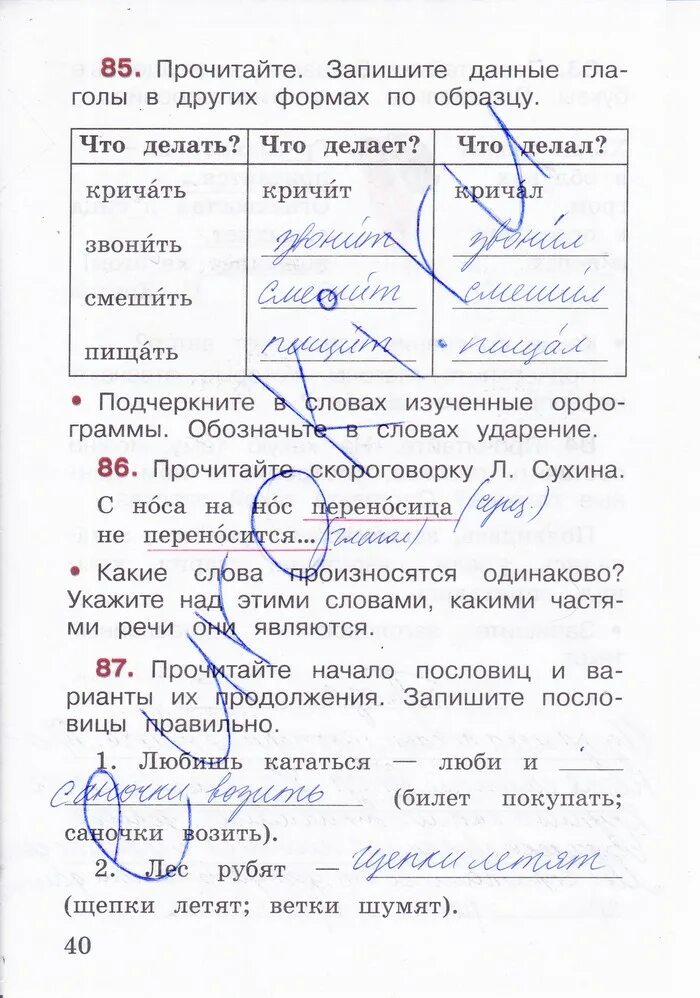 85. Прочитайте. Запишите данные гла-
голы в других формах по образцу.
Что делать? Что делает? Что делал?
крича́ть кричи́т крича́л
звони́ть звони́т звони́л
смеши́ть смеши́т смеши́л
пища́ть пищи́т пища́л
• Подчеркните в словах изученные орфо-
граммы. Обозначьте в словах ударение.
86. Прочитайте скороговорку Л. Сухина.
С но́са на но́с перено́сица (сущ.)
не перено́сится... (глагол)
• Какие слова произносятся одинаково?
Укажите над этими словами, какими частя-
ми речи они являются.
87. Прочитайте начало пословиц и ва-
рианты их продолжения. Запишите посло-
вицы правильно.
1. Любишь кататься — люби и
саночки возить (билет покупать;
саночки возить).
2. Лес рубят — щепки летят
(щепки летят; ветки шумят).
40